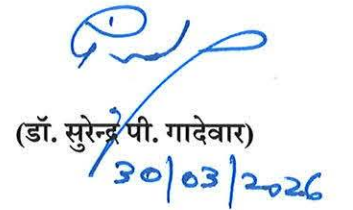 (डॉ. सुरेन्द्र पी. गादेवार)
30/03/2026